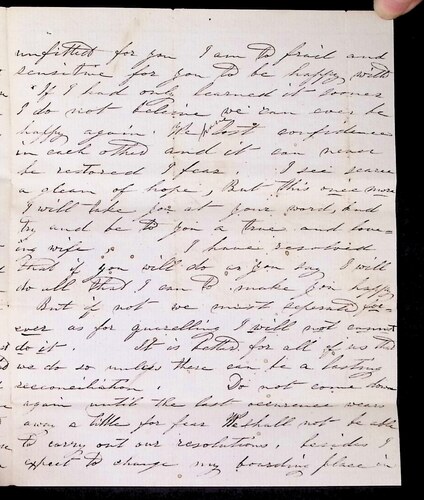 unfitted for you I am to frail and
sensitive for you to be happy with
If I had only learned it sooner
I do not believe we can ever be
happy again. We lost confidence
in each other and it can never
be restored I fear. I see scarce
a gleam of hope, But this once more
I will take you at your word, and
try and be to you a true and lov-
ing wife. I have resolved
that if you will do as you say I will
do all that I can to make you happy
But if not we must seperate for-
ever as for quarelling I will not
do it It is better for all of us that
we do so unless there can be a lasting
reconciliation. Do not come down
again until the last occurence wears
away a little for fear We shall not be able
to carry out our resolutions, besides I
expect to change my boarding place in